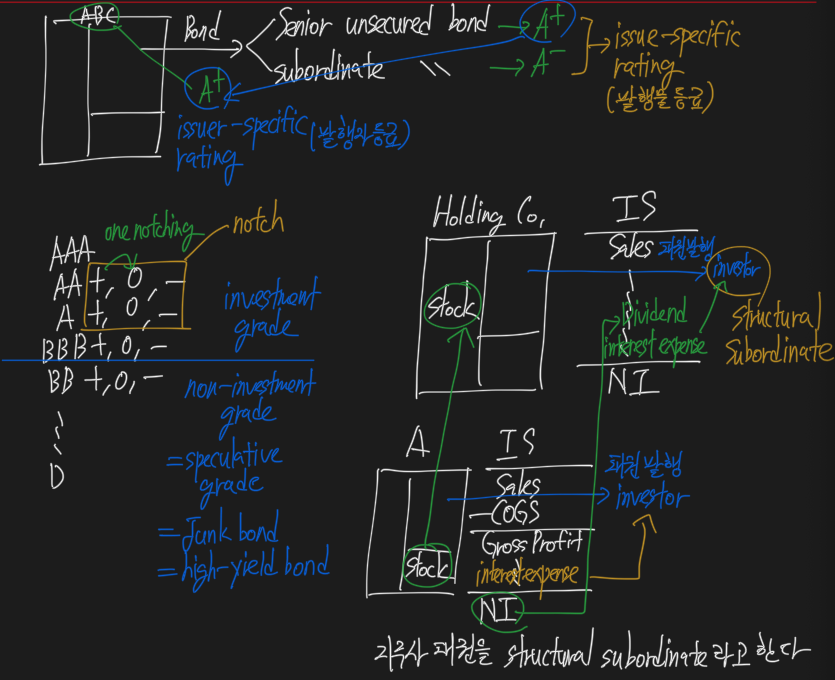 ABC
Bond
Senior unsecured bond → A+
subordinate 〃 → A-
issue-specific
rating
(발행물 등급)
A+
issuer-specific (발행자 등급)
rating
one notching
notch
AAA
AA +, 0, -
A +, 0, -
BBB +, 0, -
BB +, 0, -
D
investment
grade
non-investment
grade
= speculative
grade
= Junk bond
= high-yield bond
Holding Co,
Stock
IS
Sales
채권발행
investor
Dividend
interest expense
NI
Structural
Subordinate
A
Stock
IS
Sales
-COGS
Gross Profit
interest expense
NI
채권발행
investor
지주사 채권을 structural subordinate라고 한다